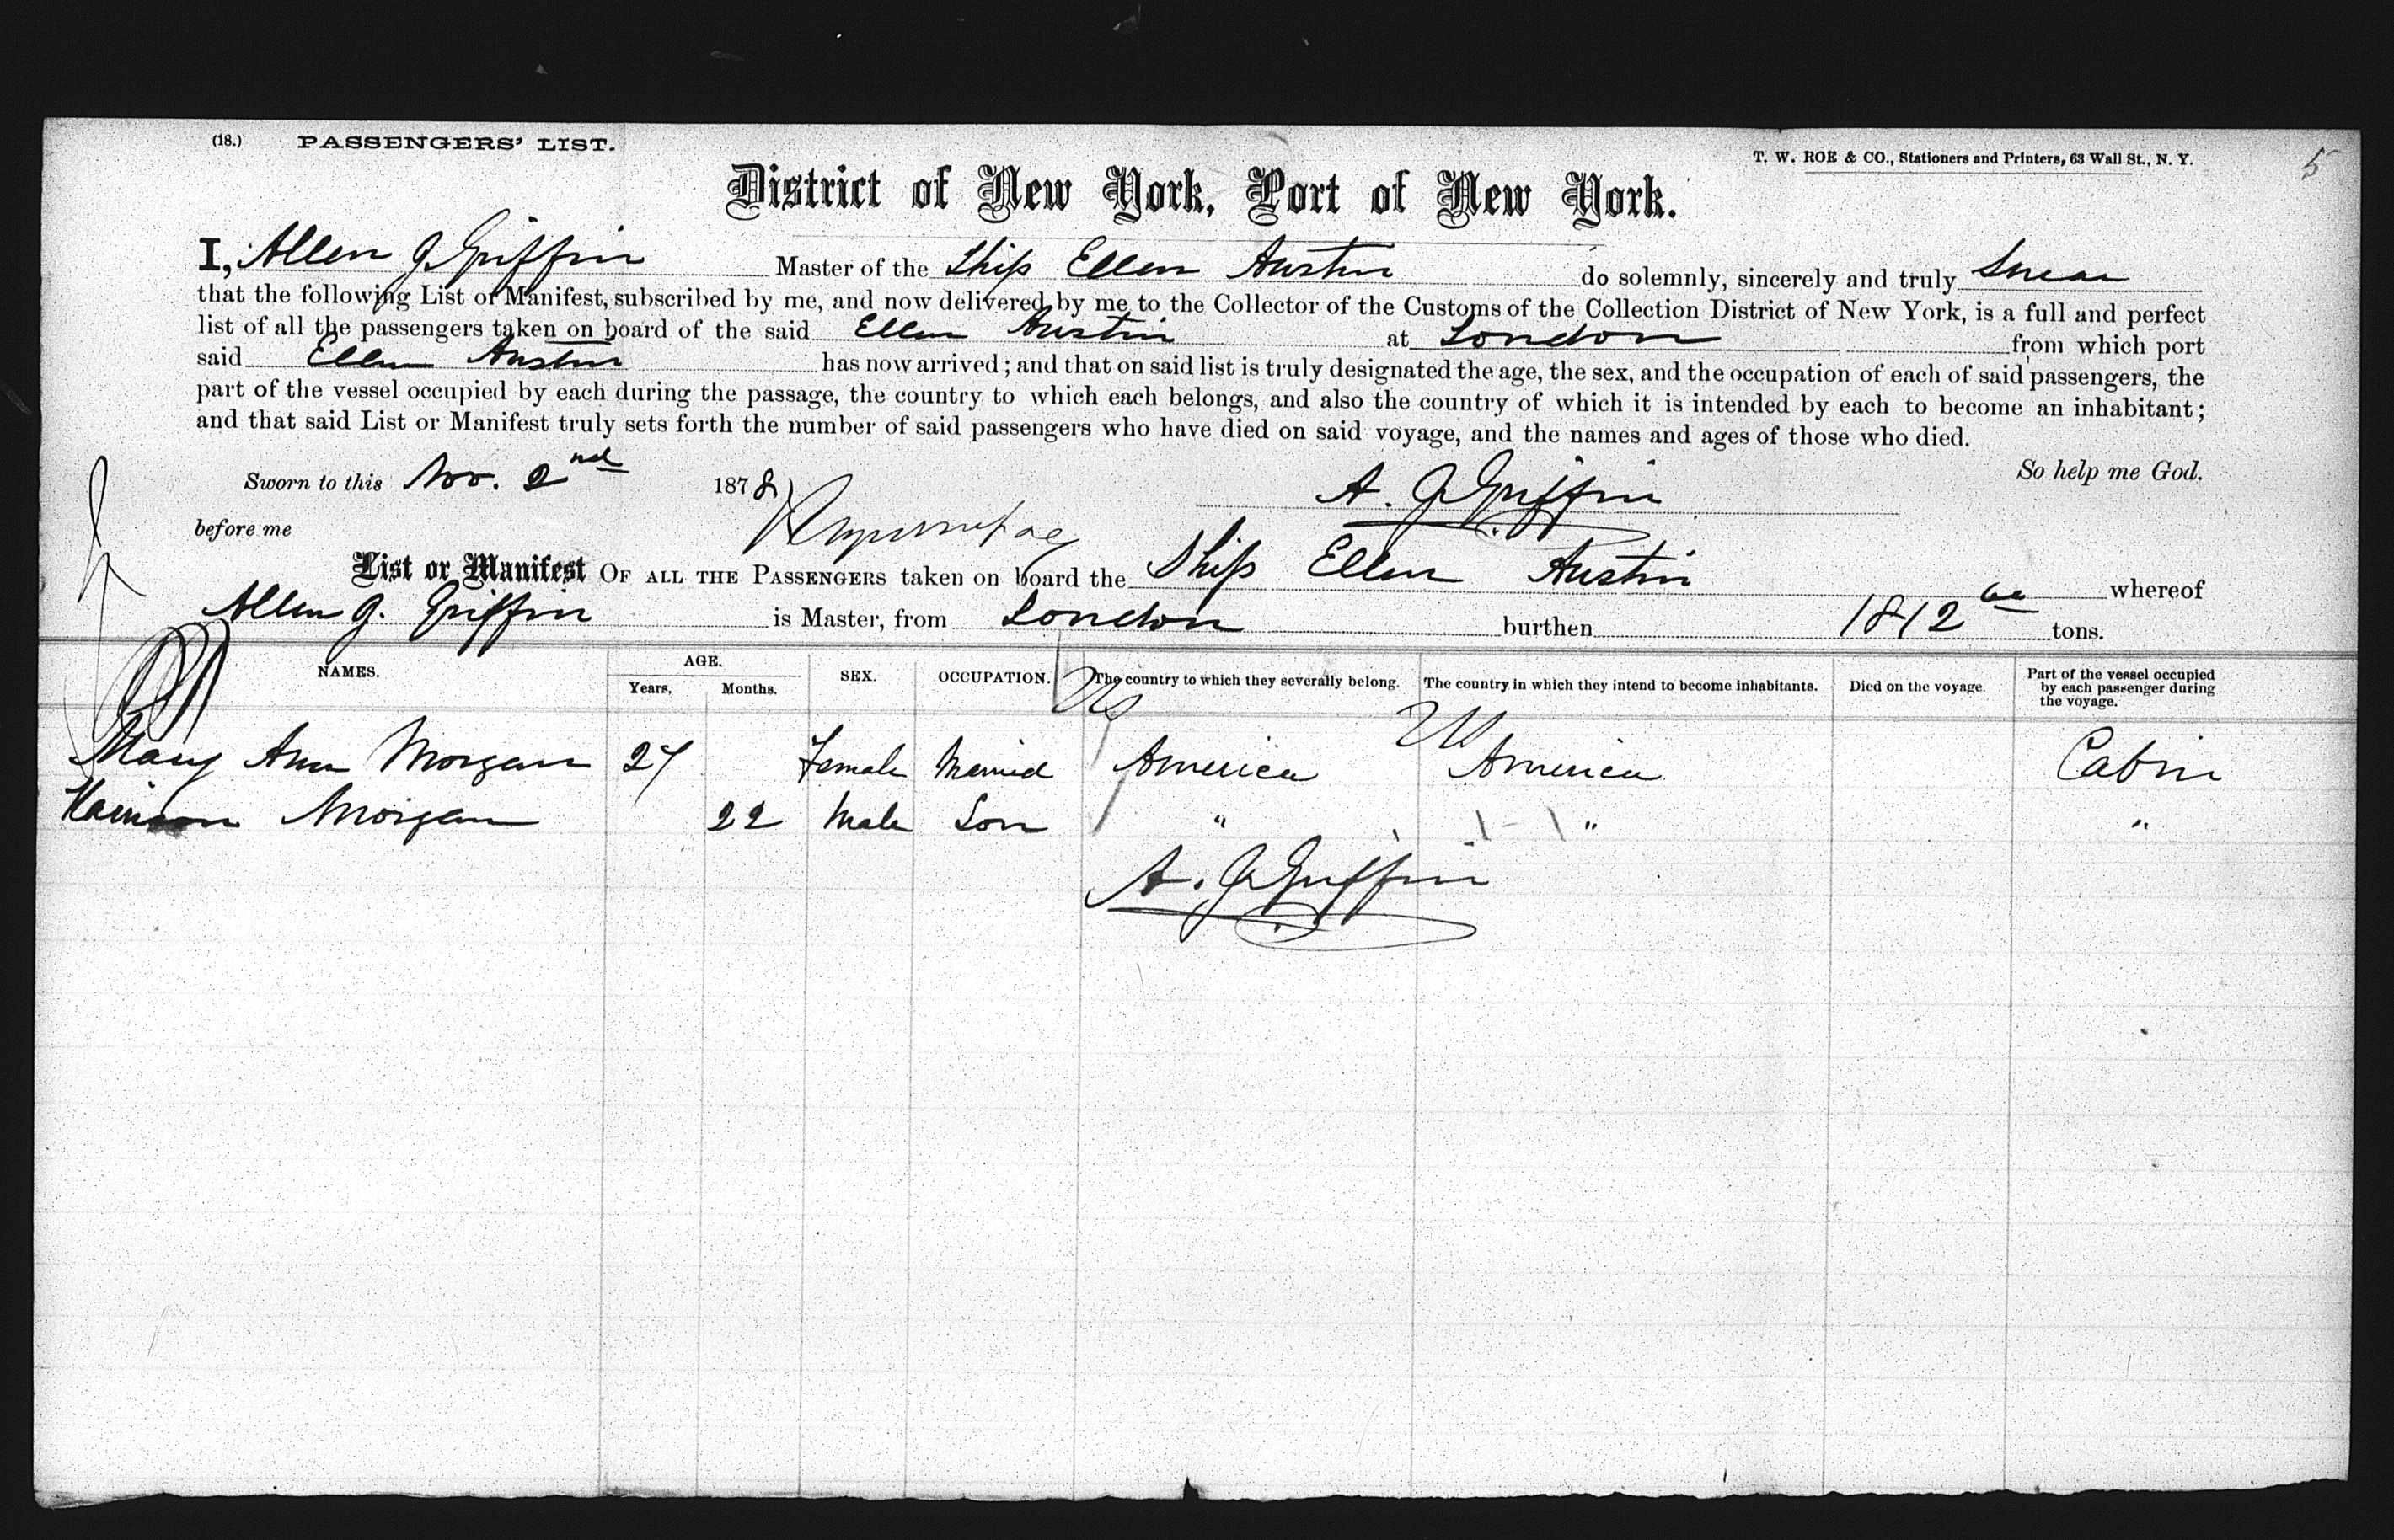 (18.) PASSENGERS' LIST.
T. W. ROE & CO., Stationers and Printers, 63 Wall St., N. Y.
5
District of New York, Port of New York.
I, Allen J. Griffin Master of the Ship Ellen Austin do solemnly, sincerely and truly Swear
that the following List or Manifest, subscribed by me, and now delivered by me to the Collector of the Customs of the Collection District of New York, is a full and perfect
list of all the passengers taken on board of the said Ellen Austin at London from which port
said Ellen Austin has now arrived; and that on said list is truly designated the age, the sex, and the occupation of each of said passengers, the
part of the vessel occupied by each during the passage, the country to which each belongs, and also the country of which it is intended by each to become an inhabitant;
and that said List or Manifest truly sets forth the number of said passengers who have died on said voyage, and the names and ages of those who died.
So help me God.
Sworn to this Nov. 2nd 1878
A. J. Griffin
before me
List or Manifest OF ALL THE PASSENGERS taken on board the Ship Ellen Austin whereof
Allen J. Griffin is Master, from London burthen 1812 tons.
NAMES. AGE. Years, Months. SEX. OCCUPATION. The country to which they severally belong. The country in which they intend to become inhabitants. Died on the voyage. Part of the vessel occupied by each passenger during the voyage.
US
US
Mary Ann Morgan 27 Female Married America America Cabin
Harrison Morgan 22 Male Son " " "
A. J. Griffin